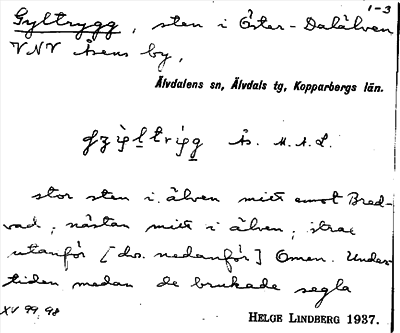 1-3
Gyltrygg, sten i Öster-Dalälven
VNV Åsens by,
Älvdalens sn, Älvdals tg, Kopparbergs län.
Ås. M.A.L.
stor sten i älven mitt emot Bred-
vad, nästan mitt i älven, strax
utanför [dvs. nedanför] Oman. Under
tiden medan de brukade segla
XV 99, 98
HELGE LINDBERG 1937.